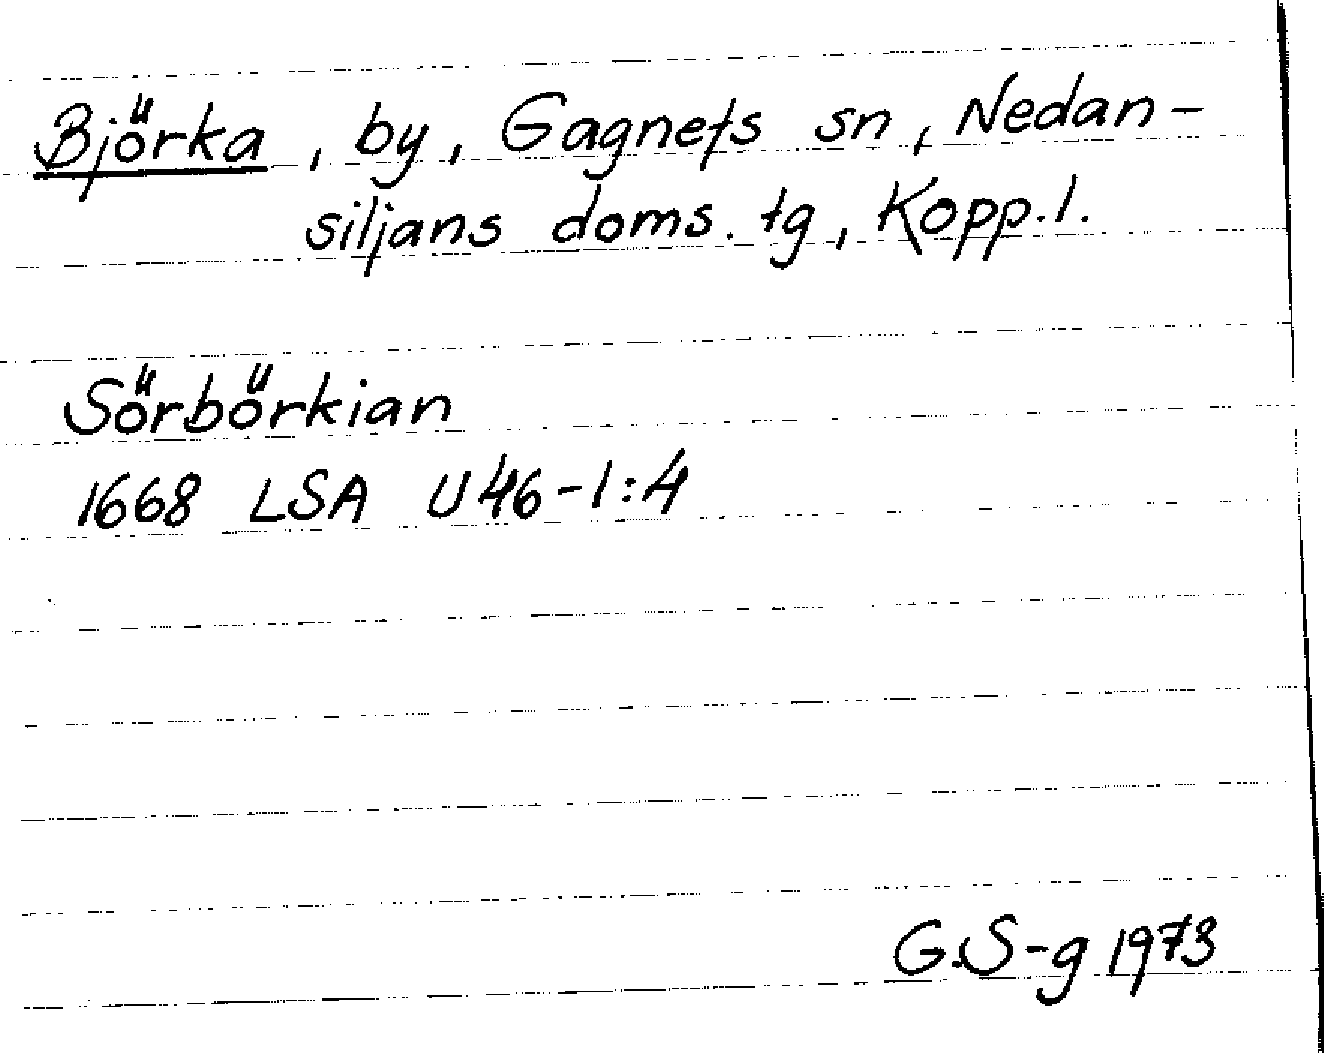 Björka, by, Gagnefs sn, Nedan-
siljans doms. tg, Kopp.l.
Sörbörkian
1668 LSA U46-1:4
G.S-g 1973